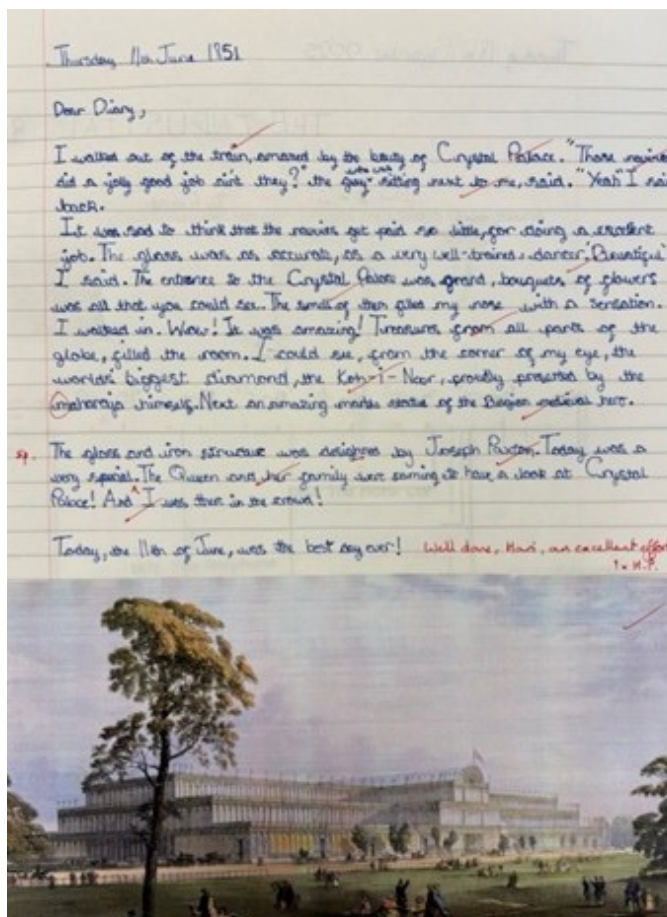 Thursday 11th June 1851
Dear Diary,
I walked out of the train, amazed by the beauty of Crystal Palace. "Those navvies
did a jolly good job ain't they?" the guy who was sitting next to me, said. "Yeah" I said
back.
It was sad to think that the navvies get paid so little, for doing a excellent
job. The glass was as accurate, as a very well-trained dancer, "Beautiful"
I said. The entrance to the Crystal Palace was grand, bouquets of flowers
was all that you could see. The smell of them filled my nose with a sensation.
I walked in. Wow! It was amazing! Treasures from all parts of the
globe, filled the room. I could see, from the corner of my eye, the
worlds' biggest diamond, the Koh-i-Noor, proudly presented by the
maharaja himself. Next an amazing marble statue of the medieval hero.
sp. The glass and iron structure was designed by Joseph Paxton. Today was a
very special. The Queen and her family were coming to have a look at Crystal
Palace! And I was there in the crowd!
Today, the 11th of June, was the best day ever! Well done, an excellent effort
1 x H.P.